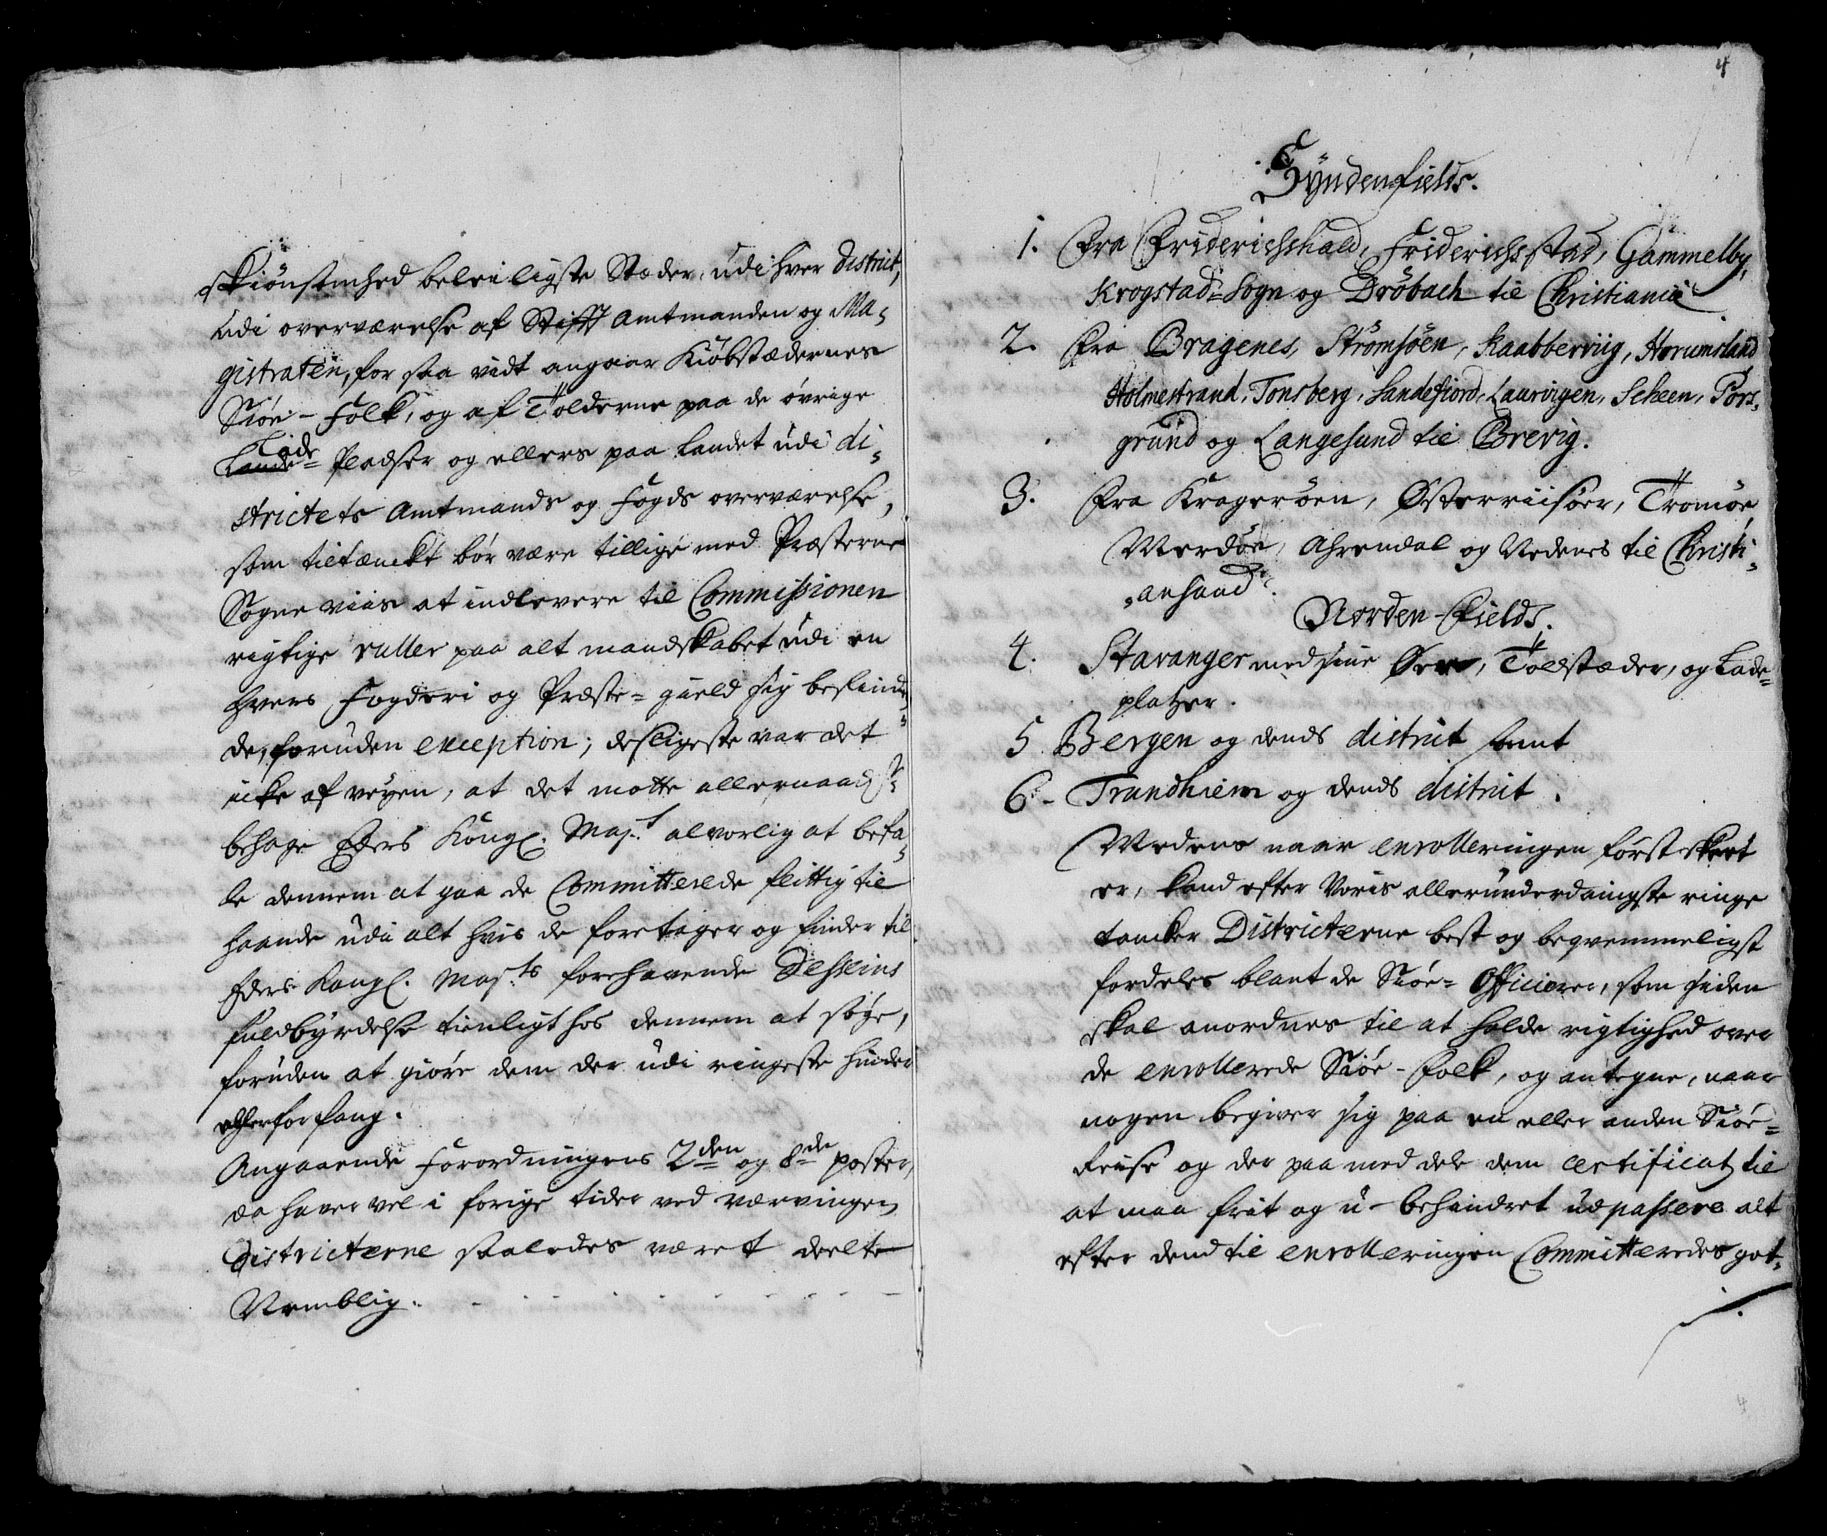 skiönsomhed beleiligste Stæder, udi hver District,
udi overværelse af Stifft Amtmanden og Ma-
gistraten, for saa vidt angaar Kiöbstædernes
Siöe-Folk, og af Tolderne paa de övrige
Lade
Lande- Pladser og ellers paa Landet udi di-
strictets Amtmands og Fogds overværelse,
som tiltænckt bör være tillige med Præsterne
Sogneviis at indlevere til Commissionen
rigtige ruller paa alt mandskabet udi en
hvers Fogderi og Præste-gield sig befinden-
de, foruden exception; desligeste var det
icke af veyen, at det motte allernaadigst
behage Eders Kongl. Mayt. alvorlig at befa-
le dennem at gaa de Committerede flittig til
haande udi alt hvis de foretager og finder til
Eders Kongl. Mayts. forehavende Desseins
fuldbyrdelse tienligt hos dennem at söge,
foruden at giöre dem der udi ringeste hinder
eller forfang.
Angaaende Forordningens 2den og 8de poster,
da haver vel i forige tider ved værvingen
Districterne saaledes været deelte
Nemblig.
4
Syndenfields.
1. Fra Friderichshald, Friderichsstad, Gammelby,
Krogstad-Sogn og Dröbach til Christiania.
2. Fra Bragenes, Strömsöen, Kaabberviig, Horumsland
Holmestrand, Tonsberg, Sandefiord, Laurvigen, Scheen, Pors-
grund og Langesund til Brevig.
3. Fra Kragerøen, Østerriisöer, Tromöe,
Merdöe, Ahrendal og Nedenes til Christi-
ansand.
Norden-Fields.
4. Stavanger med sine Øer, Toldstæder, og Lade-
platzer.
5. Bergen og dends district samt
6. Trundhiem og dends district.
Medens naar enrolleringen först skeet
er, kand efter Voris allerunderdanigste ringe
tancker Districterne best og beqvemmeligst
fordeles blant de Siöe-Officierer, som siden
skal anordnes til at holde rigtighed over
de enrollerede Siöe-Folk, og antegne, naar
nogen begiver sig paa en eller anden Siöe-
Reise og der paa meddele dem certificat til
at maa frit og u-behindret udpassere alt
efter dend til enrolleringen Committeredes got-
4